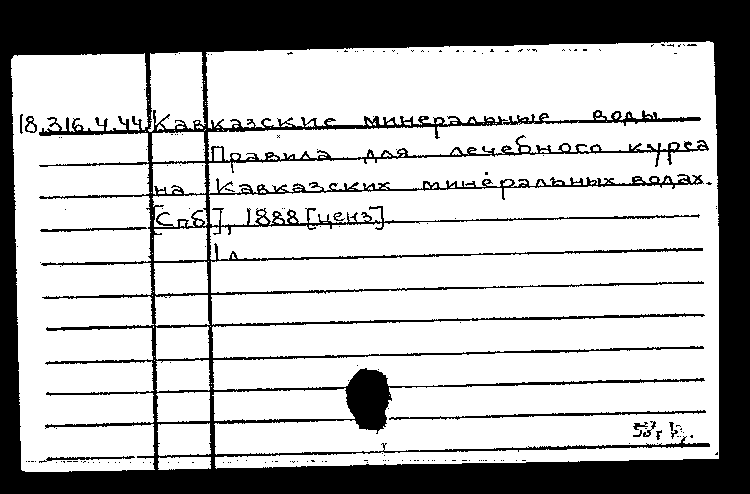 18.316.4.44 Кавказские минеральные воды
Правила для лечебного курса
на Кавказских минеральных водах.
[Спб], 1888 [ценз]
1 л.